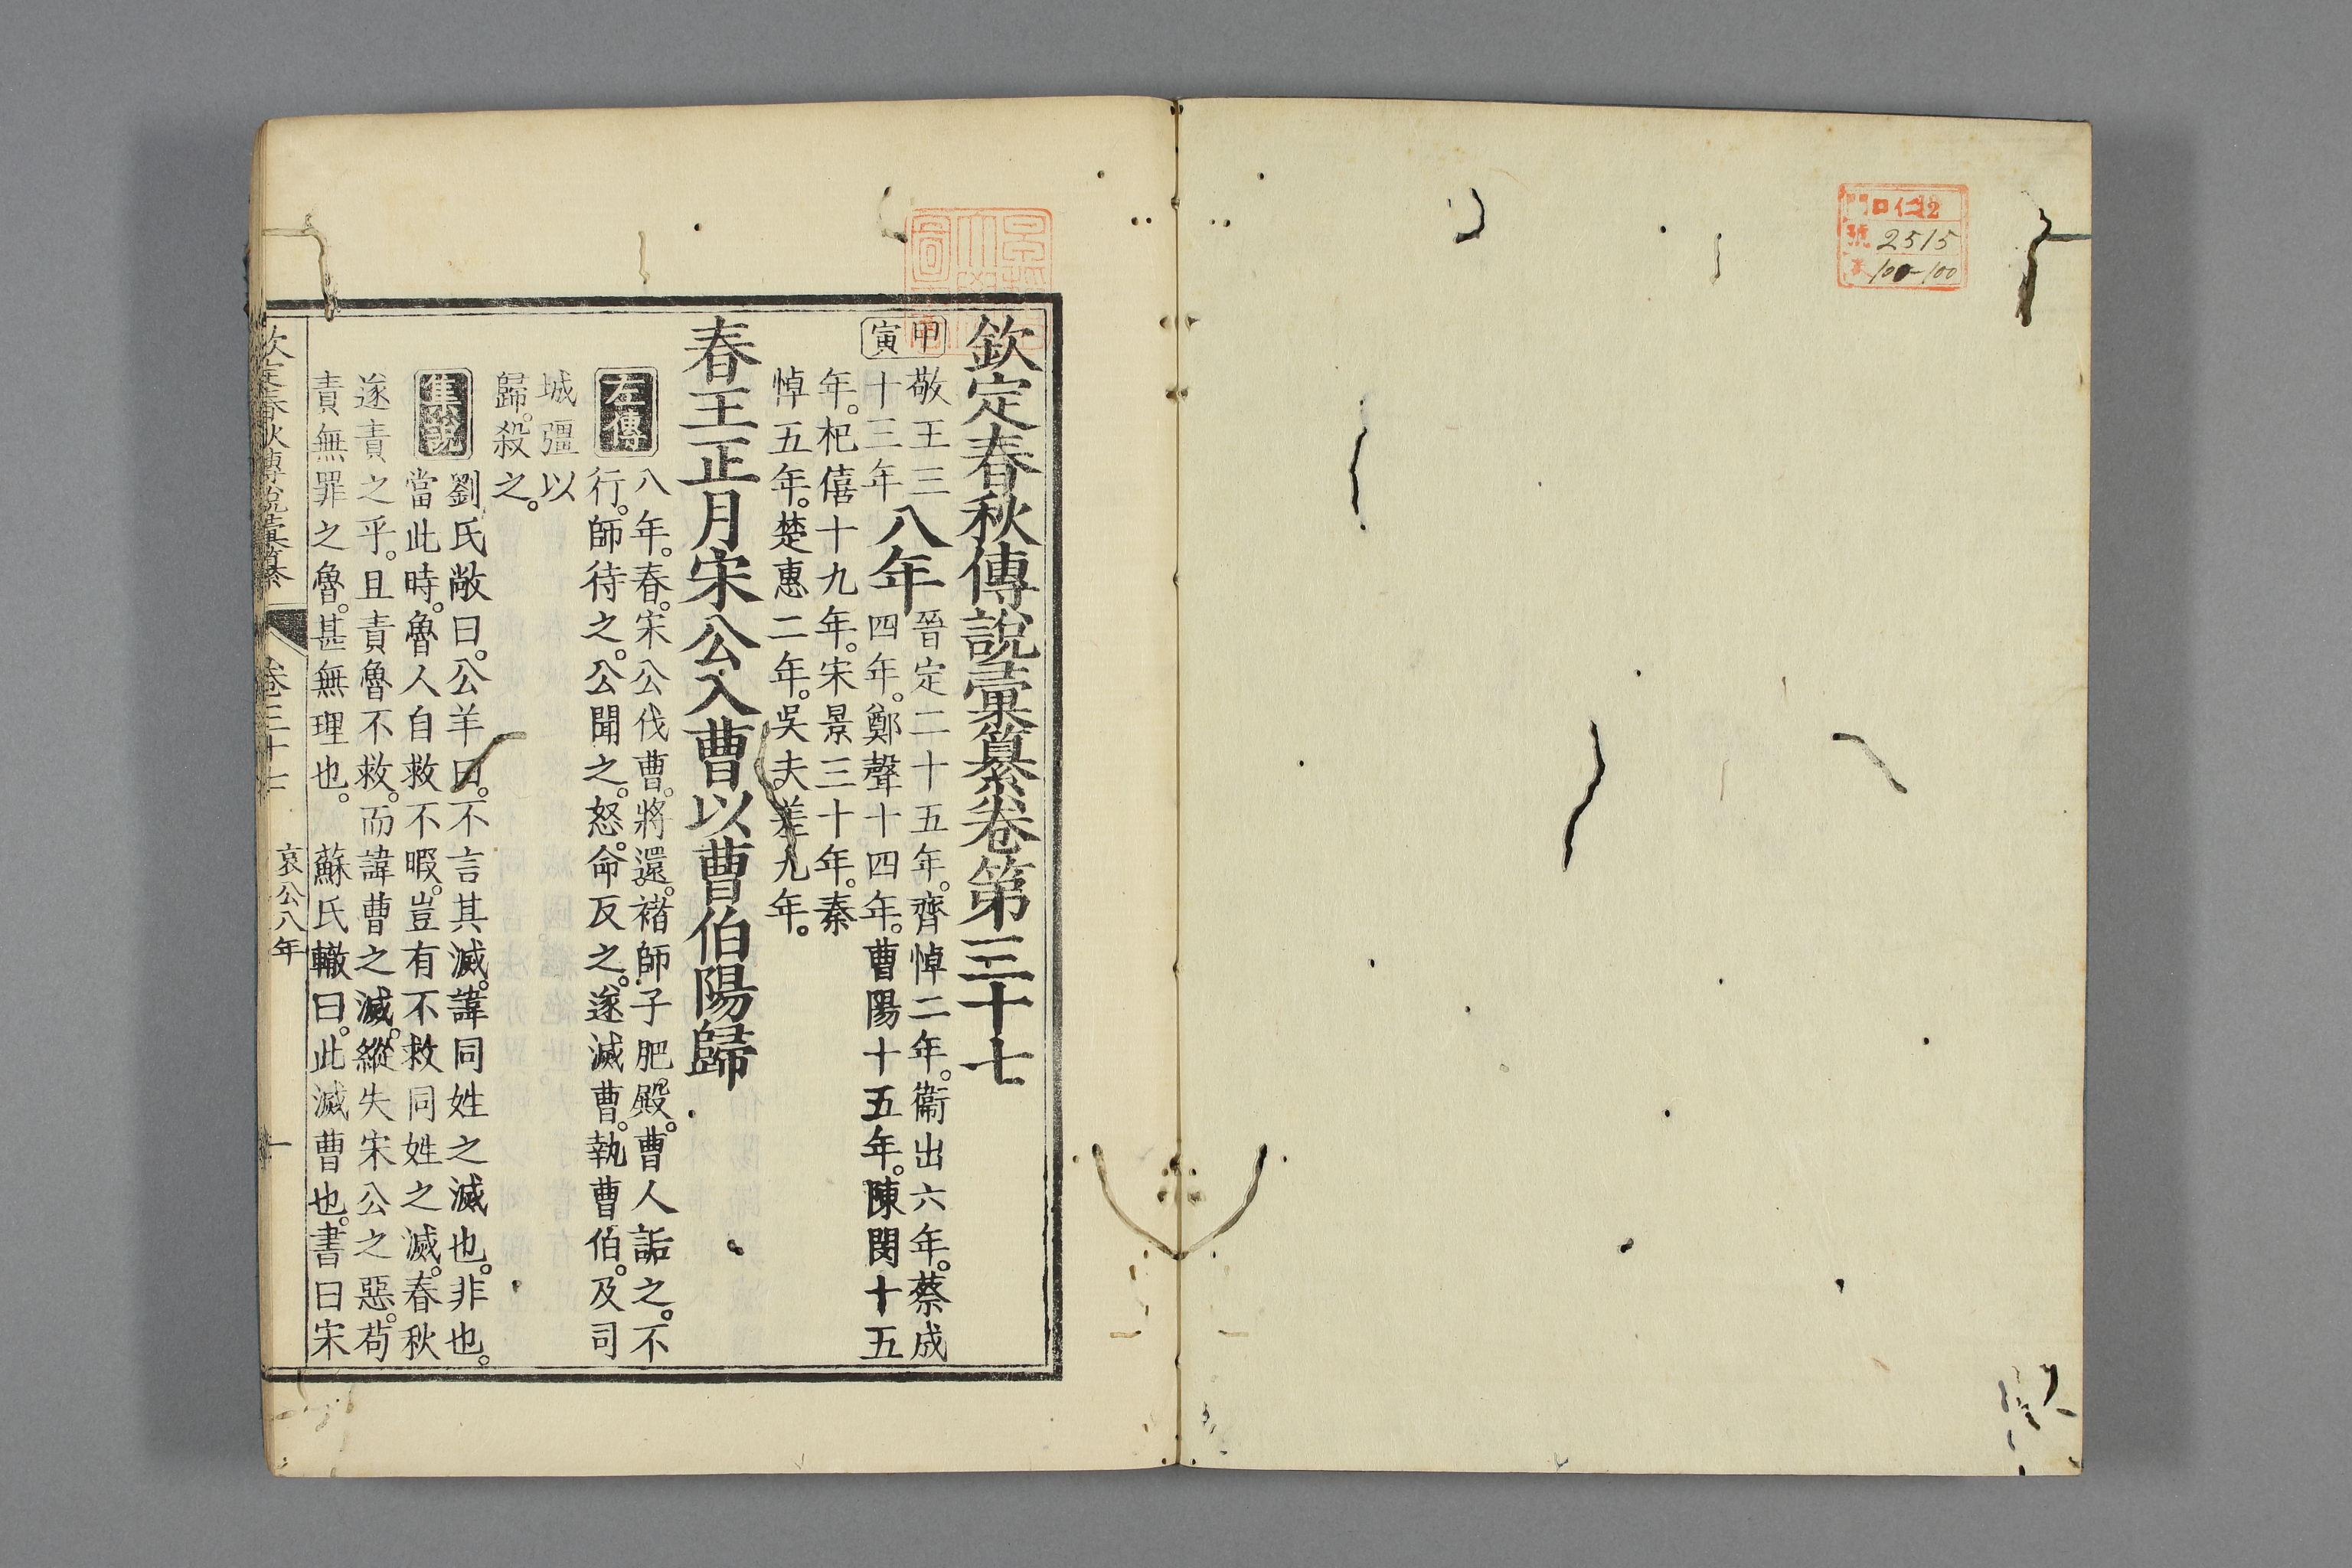 門 口 仁 12
號 2515
100-100
欽定春秋傳說彙纂卷第三十七
甲寅
敬王三十三年
八年
晉定二十五年。齊悼二年。衞出六年。蔡成
四年。鄭聲十四年。曹陽十五年。陳閔十五
年。杞僖十九年。宋景三十年。秦
悼五年。楚惠二年。吳夫差九年。
春王正月宋公入曹以曹伯陽歸
左傳
八年。春。宋公伐曹。將還。褚師子肥殿。曹人詬之。不
行。師待之。公聞之。怒。命反之。遂滅曹。執曹伯。及司
城彊以
歸。殺之。
集說
劉氏敞曰。公羊曰。不言其滅。諱同姓之滅也。非也。
當此時。魯人自救不暇。豈有不救同姓之滅。春秋
遂責之乎。且責魯不救。而諱曹之滅。縱失宋公之惡。苟
責無罪之魯。甚無理也。 蘇氏轍曰。此滅曹也。書曰宋
欽定春秋傳說彙纂 卷三十七 哀公八年 一